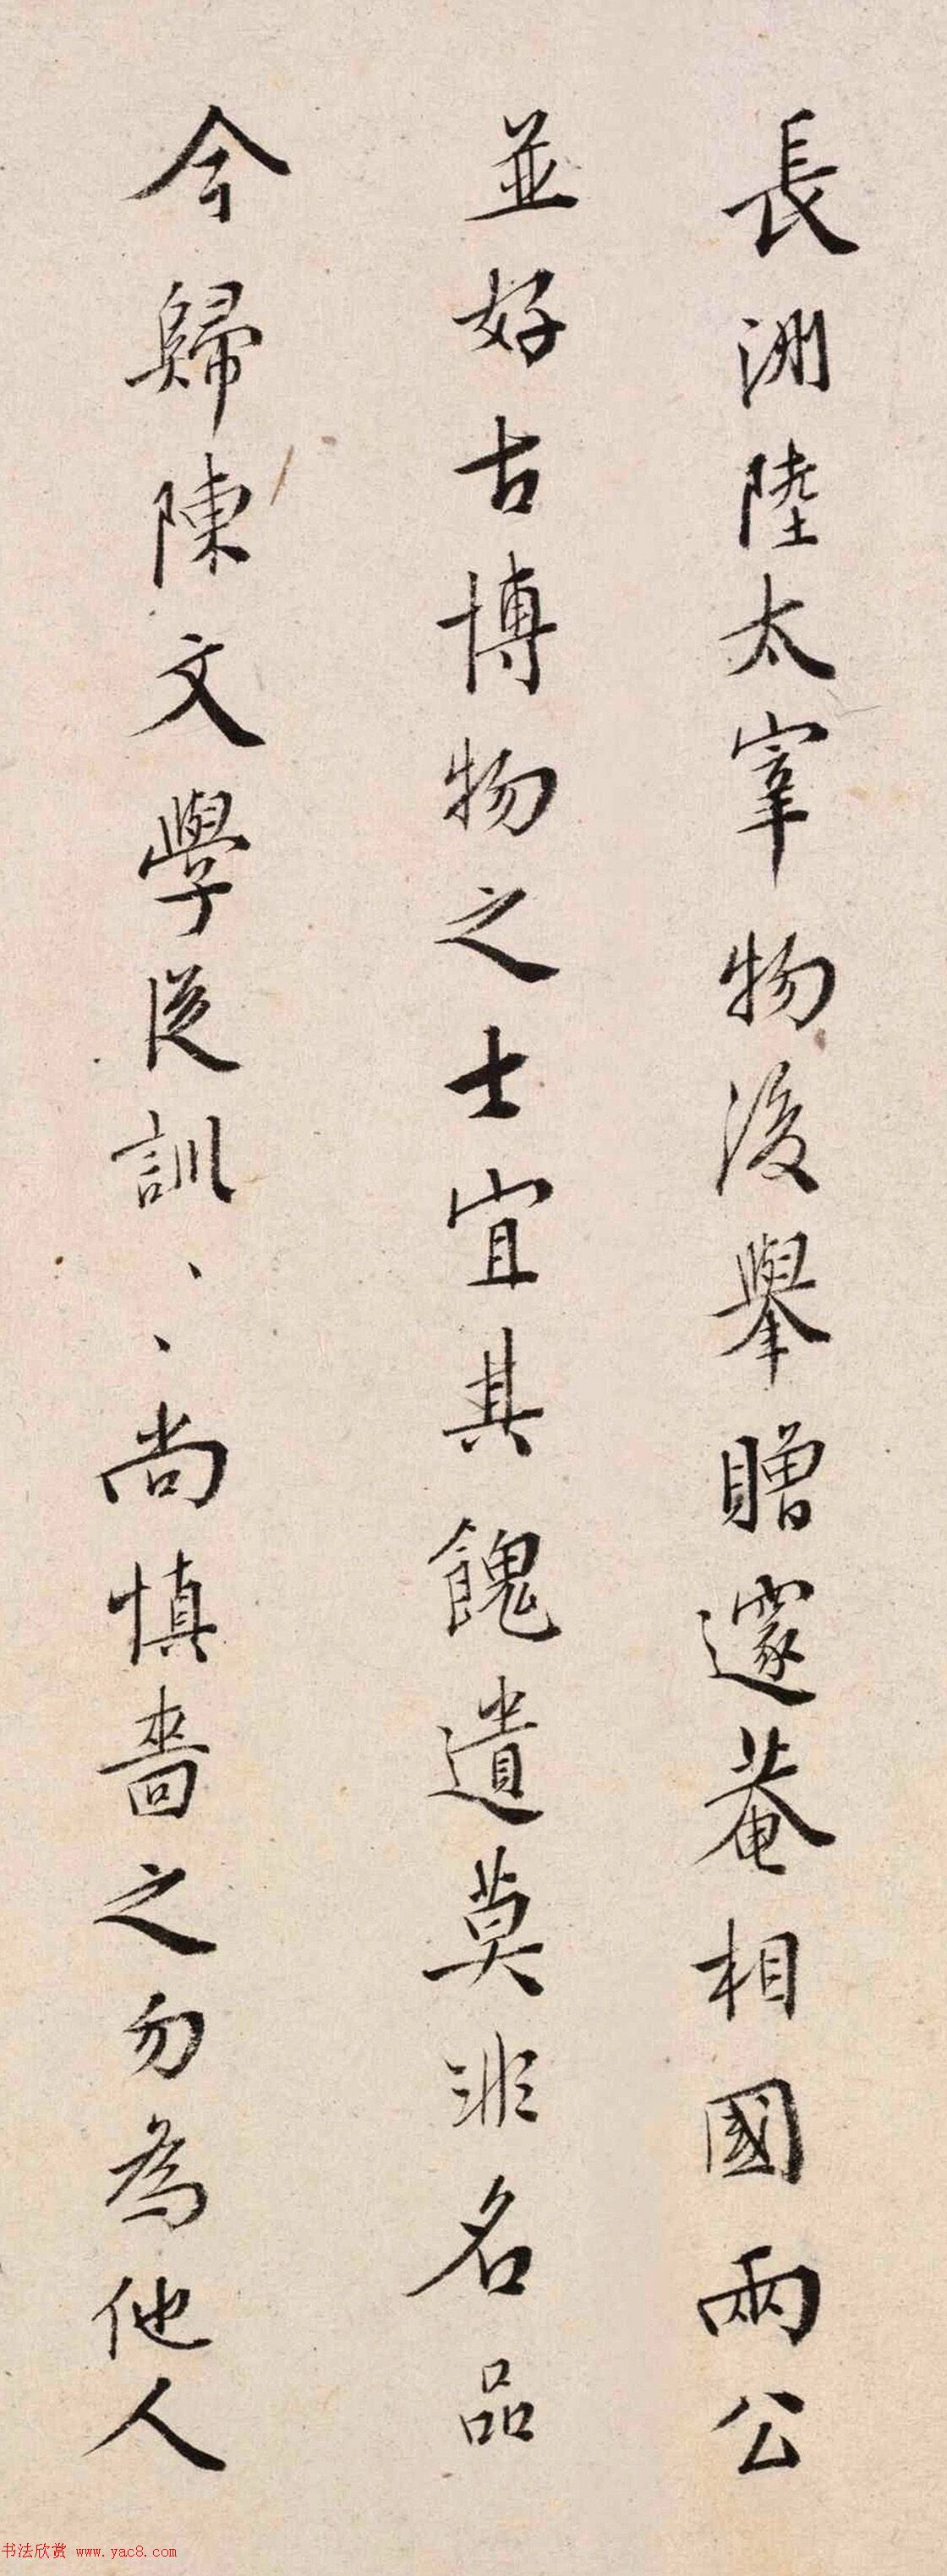 長洲陸太宰物後舉贈邃菴相國兩公
並好古博物之士宜其餽遺莫非名品
今歸陳文學從訓、、尚慎嗇之勿為他人
书法欣赏 www.yac8.com